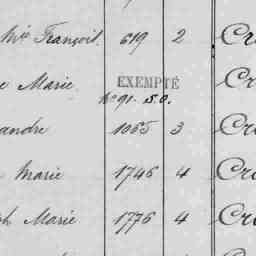 François. 619 2 Cr
e Marie EXEMPTÉ Cr
No 91. S.O.
andre 1065 3 Cr
Marie 1746 4 Cr
ph Marie 1776 4 Cr